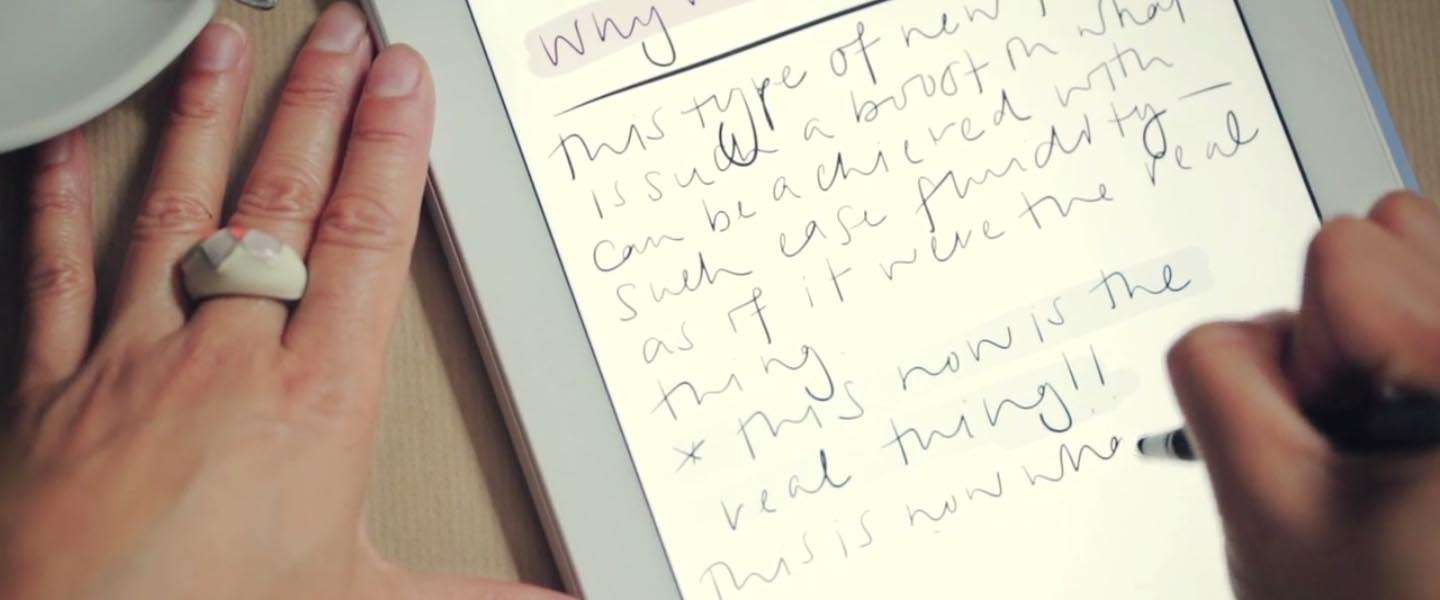 Why
This type of new
is such a boost in what
can be achieved with
such ease fluidity —
as if it were the real
thing.
* This now is the
real thing!!
This is now wha